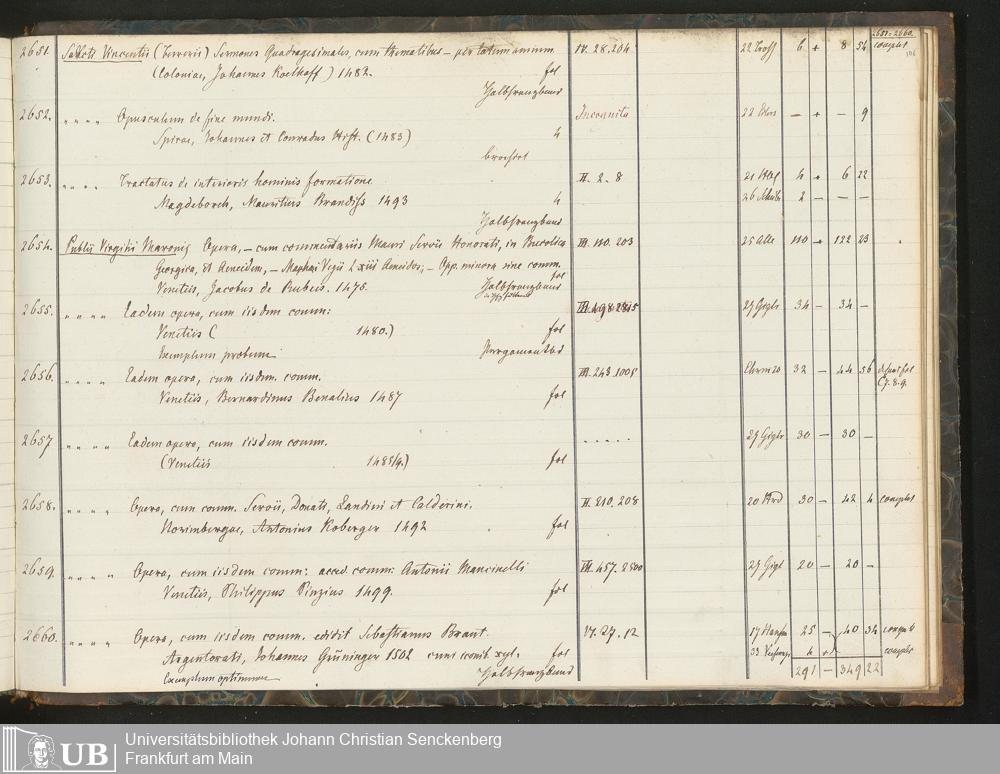 2651-2660.
2651. Sancti Vincentii (Ferrerii) Sermones Quadragesimales, cum thematibus – per totum annum. IV. 28. 204 22 6 + 8 54 complet
(Coloniae, Johannes Koelhoff) 1482. fol
Halbfranzband
2652. " " " " Opusculum de fine mundi. Incognita 22 – + – 9
Spirae, Johannes et Conradus Hist. (1483) 4
brochirt
2653. " " " " Tractatus de interioris hominis formatione II. 2. 8 21 4 + 6 22
Magdeborch, Mauritius Brandiss 1493 4 26 2 – – –
Halbfranzband
2654. Publii Virgilii Maronis Opera, – cum commentariis Mauri Servii Honorati, in Bucolica III. 110. 203 25 110 + 122 23
Georgica, et Aeneidem, – Maphaei Vegii L xiii Aeneidos; – Opp. minora sine comm.
Venetiis, Jacobus de Rubeis. 1475. fol Halbfranzband
2655. " " " " Eadem opera, cum iisdem comm: 29 34 – 34 –
Venetiis ( 1480.) fol
Exemplum probum Pergamentbd
2656. " " " " Eadem opera, cum iisdem. comm. III. 243. 1008 32 – 44 56
Venetiis, Bernardinus Benalius 1487 fol
2657 " " " " Eadem opera, cum iisdem comm. . . . . . 29 30 – 30 –
(Venetiis 1485/9.) fol
2658. " " " " Opera, cum comm. Servii, Donati, Landini et Calderini. II. 210. 208 20 30 – 42 4 complet
Norimbergae, Antonius Koberger 1492 fol
2659. " " " " Opera, cum iisdem comm: acced. comm: Antonii Mancinelli VII. 457. 2500 29 20 – 20 –
Venetiis, Philippus Pinzius 1499. fol
2660. " " " " Opera, cum iisdem comm. edidit Sebastianus Brant. VI. 27. 12 17 25 – 40 34 complet
Argentorati, Johannes Grüninger 1502 cum iconib. xyl. fol 33 4 + complet
Exemplum optimum Halbfranzband 291 – 349 22
UB
Universitätsbibliothek Johann Christian Senckenberg
Frankfurt am Main